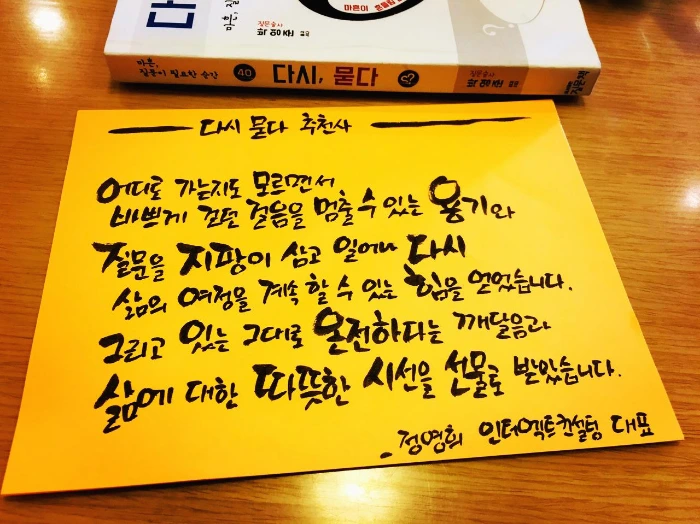 다
마흔, 질
마흔이 흔들릴
질문술사
박영준 씀
마흔,
질문이 필요한 순간
40
다시, 묻다
질문술사
박영준 씀
다시 묻다 추천사
어디로 가는지도 모르면서
바쁘게 걷던 걸음을 멈출 수 있는 용기와
질문을 지팡이 삼고 일어나 다시
삶의 여정을 계속 할 수 있는 힘을 얻었습니다.
그리고 있는 그대로 온전하다는 깨달음과
삶에 대한 따뜻한 시선을 선물로 받았습니다.
- 정영희 인터엑트컨설팅 대표